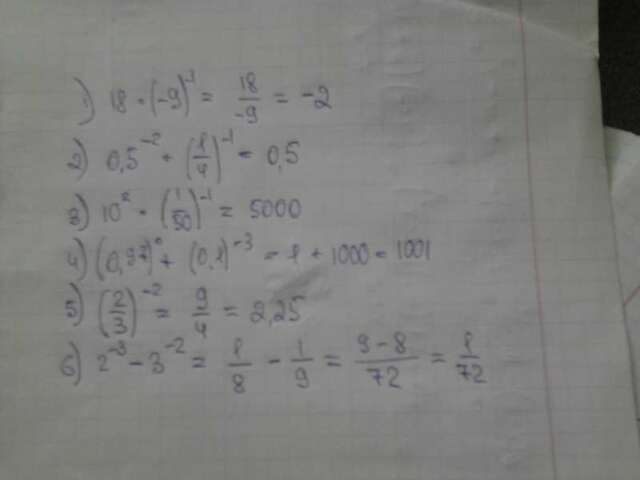 1) 18 · (-9)⁻¹ = 18/-9 = -2
2) 0,5⁻² + (1/4)⁻¹ = 0,5
3) 10² · (1/50)⁻¹ = 5000
4) (0,97)⁰ + (0,1)⁻³ = 1 + 1000 = 1001
5) (2/3)⁻² = 9/4 = 2,25
6) 2⁻³ - 3⁻² = 1/8 - 1/9 = 9-8/72 = 1/72